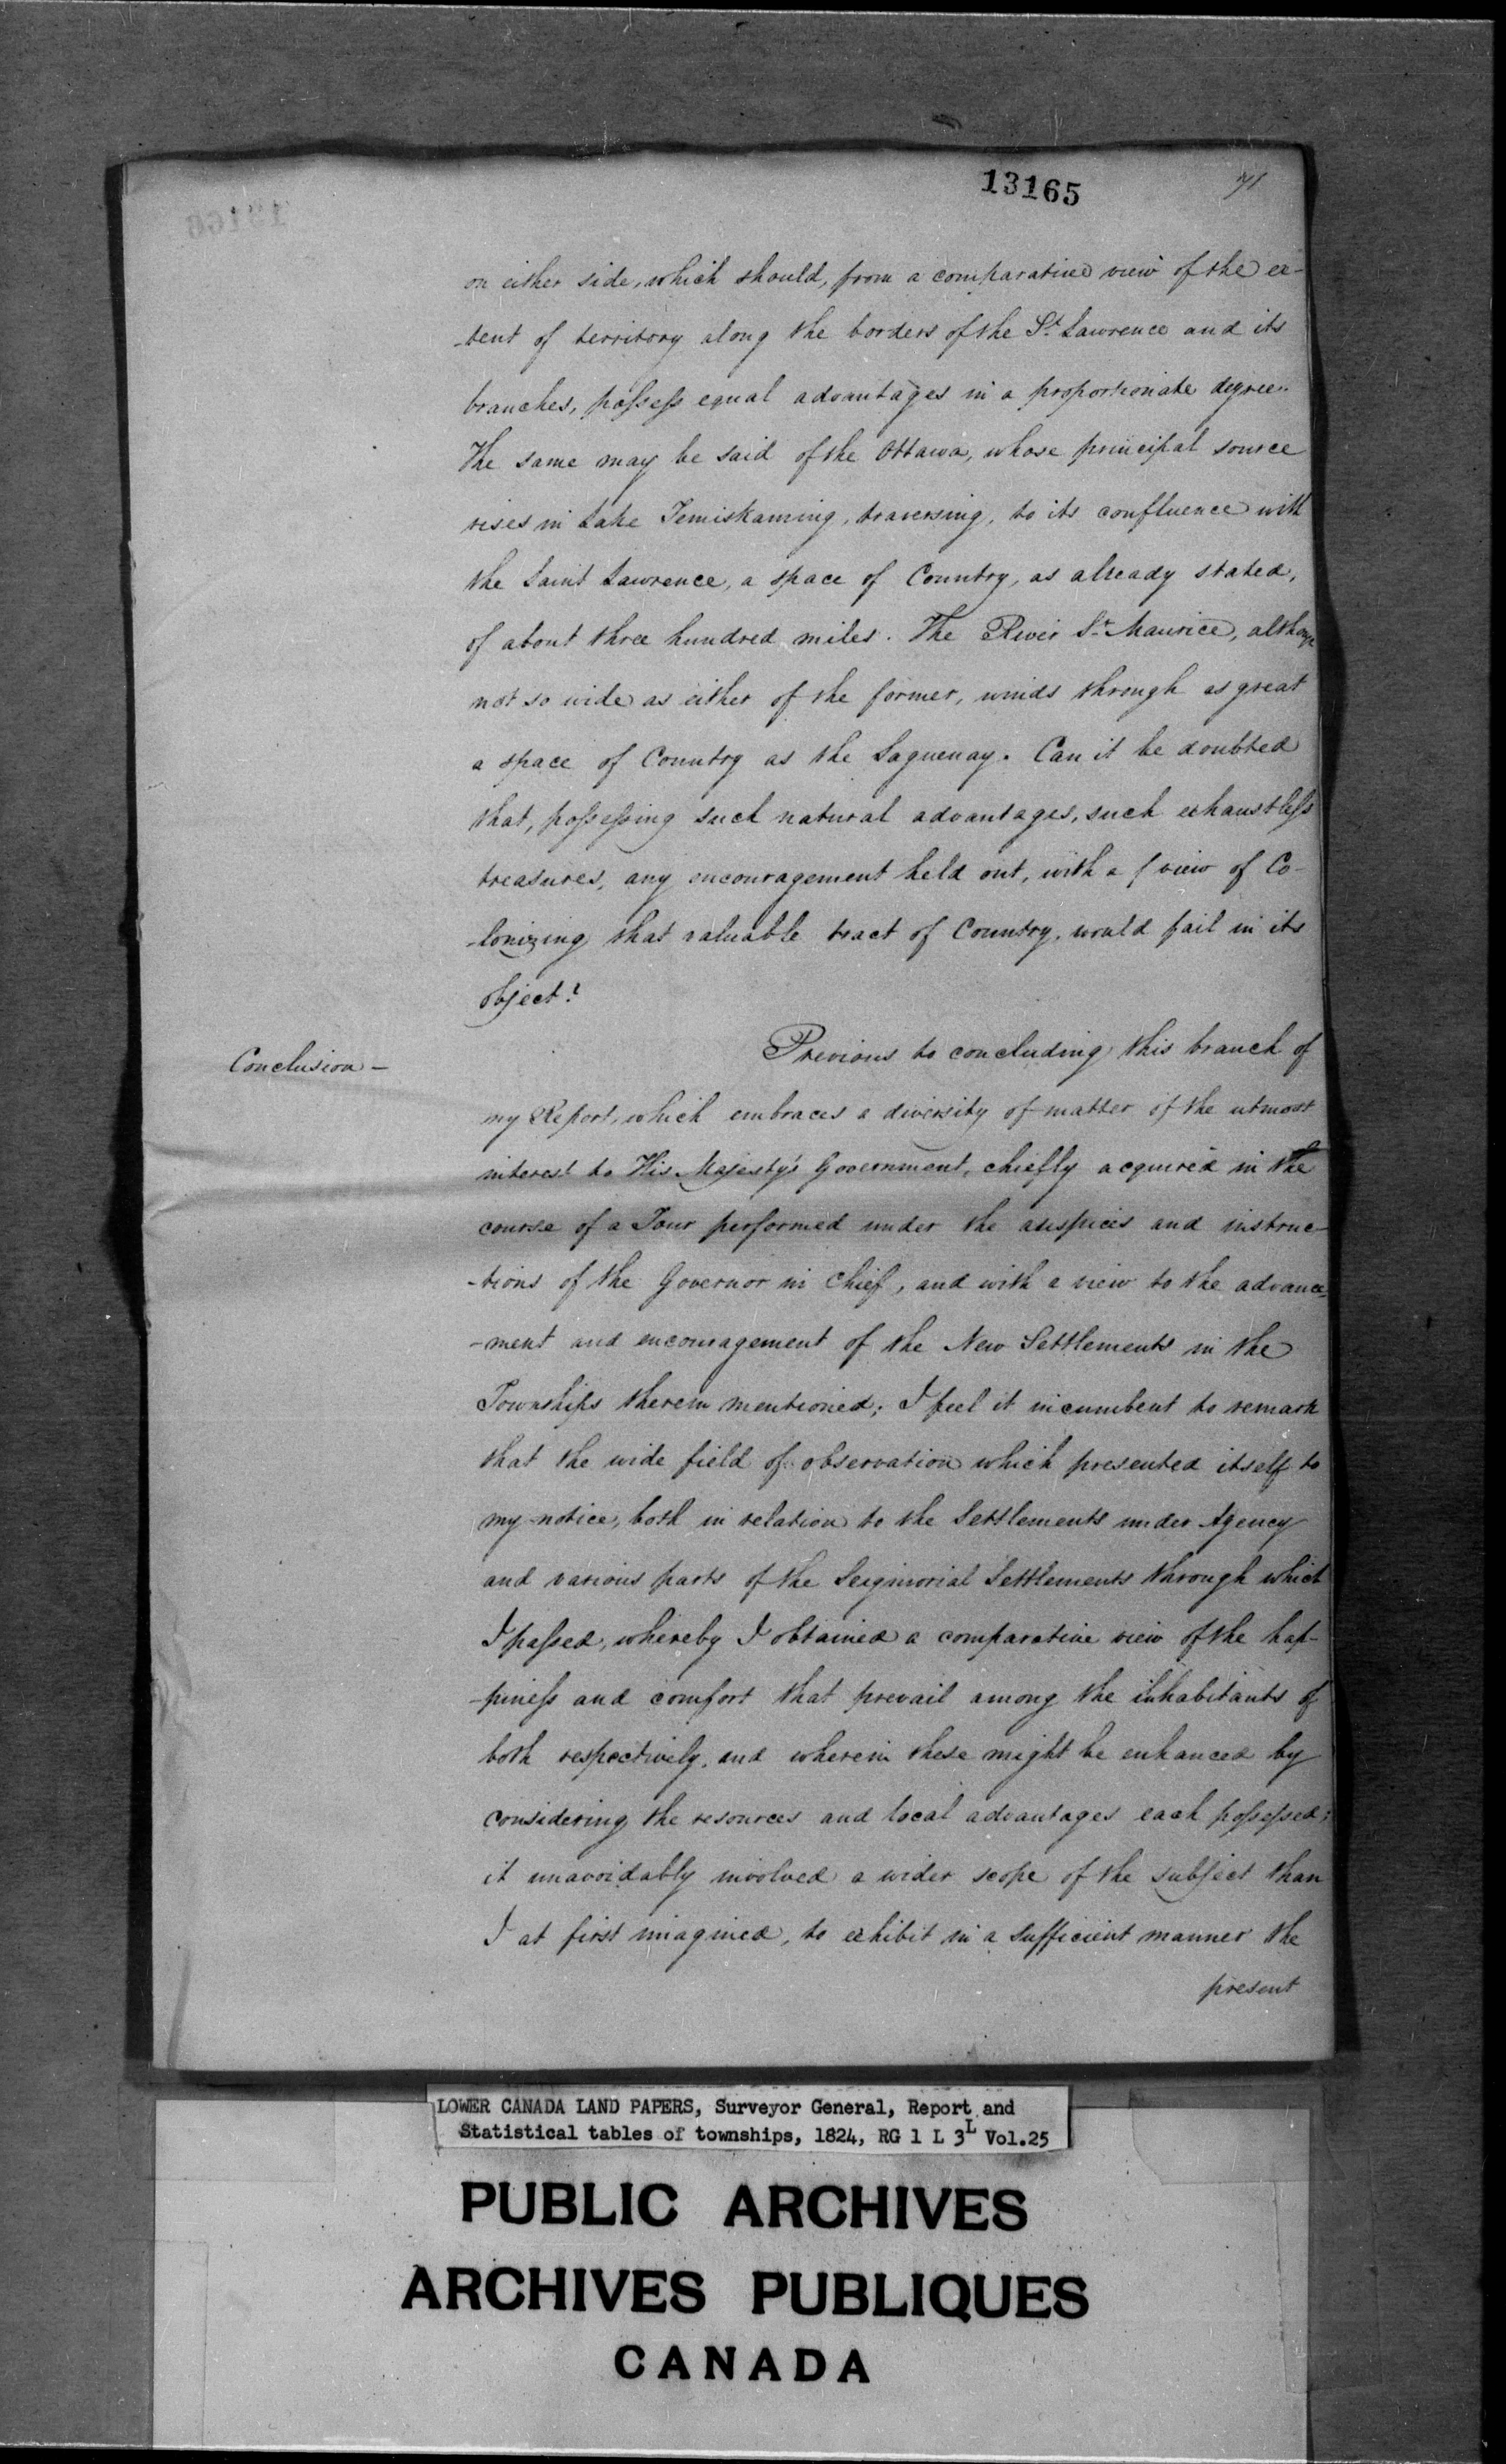 13165
71
on either side, which should, from a comparative view of the ex-
-tent of territory along the borders of the St. Lawrence and its
branches, possess equal advantages in a proportionate degree.
The same may be said of the Ottawa, whose principal source
rises in Lake Temiskaming, traversing, to its confluence with
the Saint Lawrence, a space of Country, as already stated,
of about three hundred miles. The River St. Maurice, although
not so wide as either of the former, winds through as great
a space of Country as the Saguenay. Can it be doubted
that, possessing such natural advantages, such exhaustless
treasures, any encouragement held out, with a view of Co-
-lonizing that valuable tract of Country, would fail in its
object?
Conclusion -
Previous to concluding this branch of
my Report, which embraces a diversity of matter of the utmost
interest to His Majesty's Government, chiefly acquired in the
course of a Tour performed under the auspices and instruc-
-tions of the Governor in Chief, and with a view to the advance-
-ment and encouragement of the New Settlements in the
Townships therein mentioned; I feel it incumbent to remark
that the wide field of observation which presented itself to
my notice, both in relation to the Settlements under Agency
and various parts of the Seigniorial Settlements through which
I passed, whereby I obtained a comparative view of the hap-
-piness and comfort that prevail among the inhabitants of
both respectively, and wherein these might be enhanced by
considering the resources and local advantages each possessed;
it unavoidably involved a wider scope of the subject than
I at first imagined, to exhibit in a sufficient manner the
present
LOWER CANADA LAND PAPERS, Surveyor General, Report and
Statistical tables of townships, 1824, RG 1 L 3L Vol.25
PUBLIC ARCHIVES
ARCHIVES PUBLIQUES
CANADA